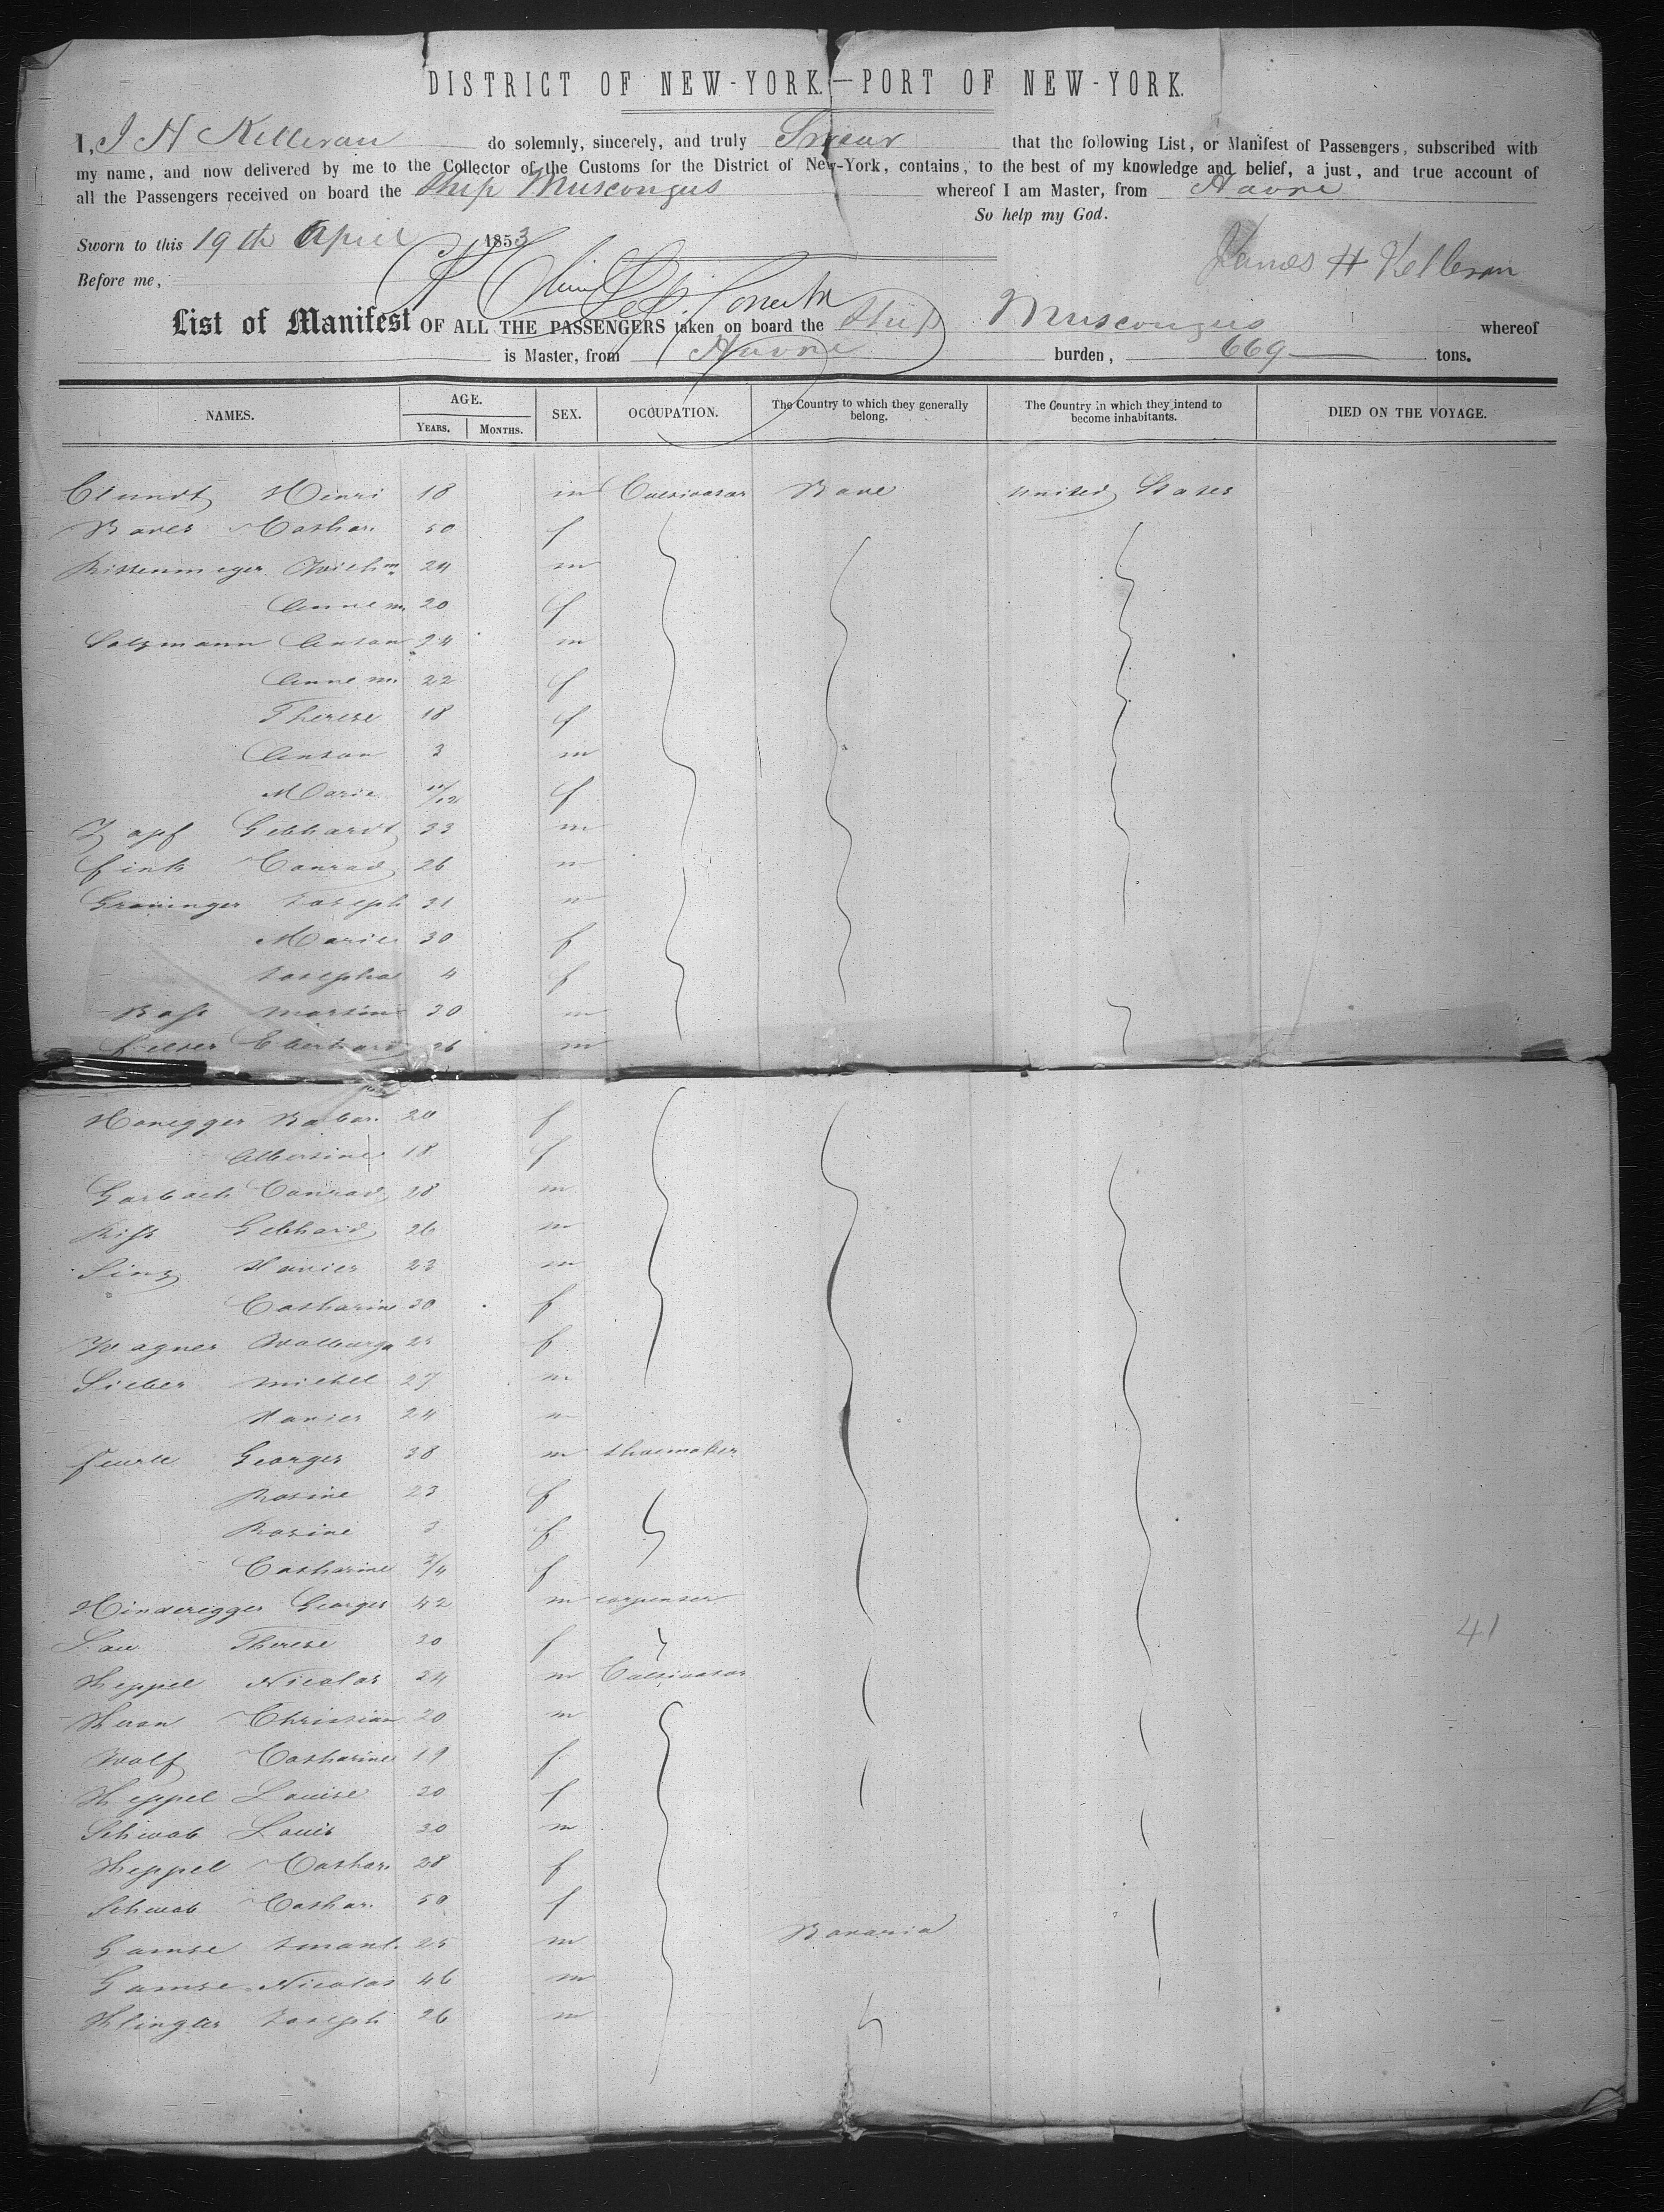 DISTRICT OF NEW-YORK.—PORT OF NEW-YORK.
I, J H Kelleran do solemnly, sincerely, and truly Swear that the following List, or Manifest of Passengers, subscribed with
my name, and now delivered by me to the Collector of the Customs for the District of New-York, contains, to the best of my knowledge and belief, a just, and true account of
all the Passengers received on board the Ship Muscongus whereof I am Master, from Havre
So help my God.
Sworn to this 19th April 1853
James H Kelleran
Before me,
List of Manifest OF ALL THE PASSENGERS taken on board the Ship Muscongus whereof
is Master, from Havre burden, 669 tons.
NAMES. AGE. YEARS. MONTHS. SEX. OCCUPATION. The Country to which they generally belong. The Country in which they intend to become inhabitants. DIED ON THE VOYAGE.
Henri 18 m Cultivator Bade United States
Bader Cathar. 50 f
Rittenmeyer Wilhm 24 m
Anne m. 20 f
Salzmann Anton 24 m
Anne m. 22 f
Therese 18 f
Anton 3 m
Marie 11/12 f
Zapf Gebhardt 33 m
Fink Conrad 26 m
Groninger Joseph 31 m
Marie 30 f
Josepha 4 f
Martin 30 m
Eberhard 26 m
Honegger Babar. 20 f
Albertine 18 f
Garbach Conrad 28 m
Riss Gebhard 26 m
Sinz Xavier 23 m
Catharine 30 f
Wagner Walburga 25 f
Sieber Michel 27 m
Xavier 24 m
Feurle Georges 38 m shoemaker
Rosine 23 f
Rosine 3 f
Catharine 3/4 f
Hinderegger Georges 42 m carpenter
Therese 30 f
Heppel Nicolas 24 m Cultivator
Christian 20 m
Wolf Catharine 19 f
Heppel Louise 20 f
Schwab Louis 30 m
Heppel Cathar. 28 f
Schwab Cathar. 50 f
Gamse 25 m Bavaria
Gamse Nicolas 46 m
Klingler Joseph 26 m
41